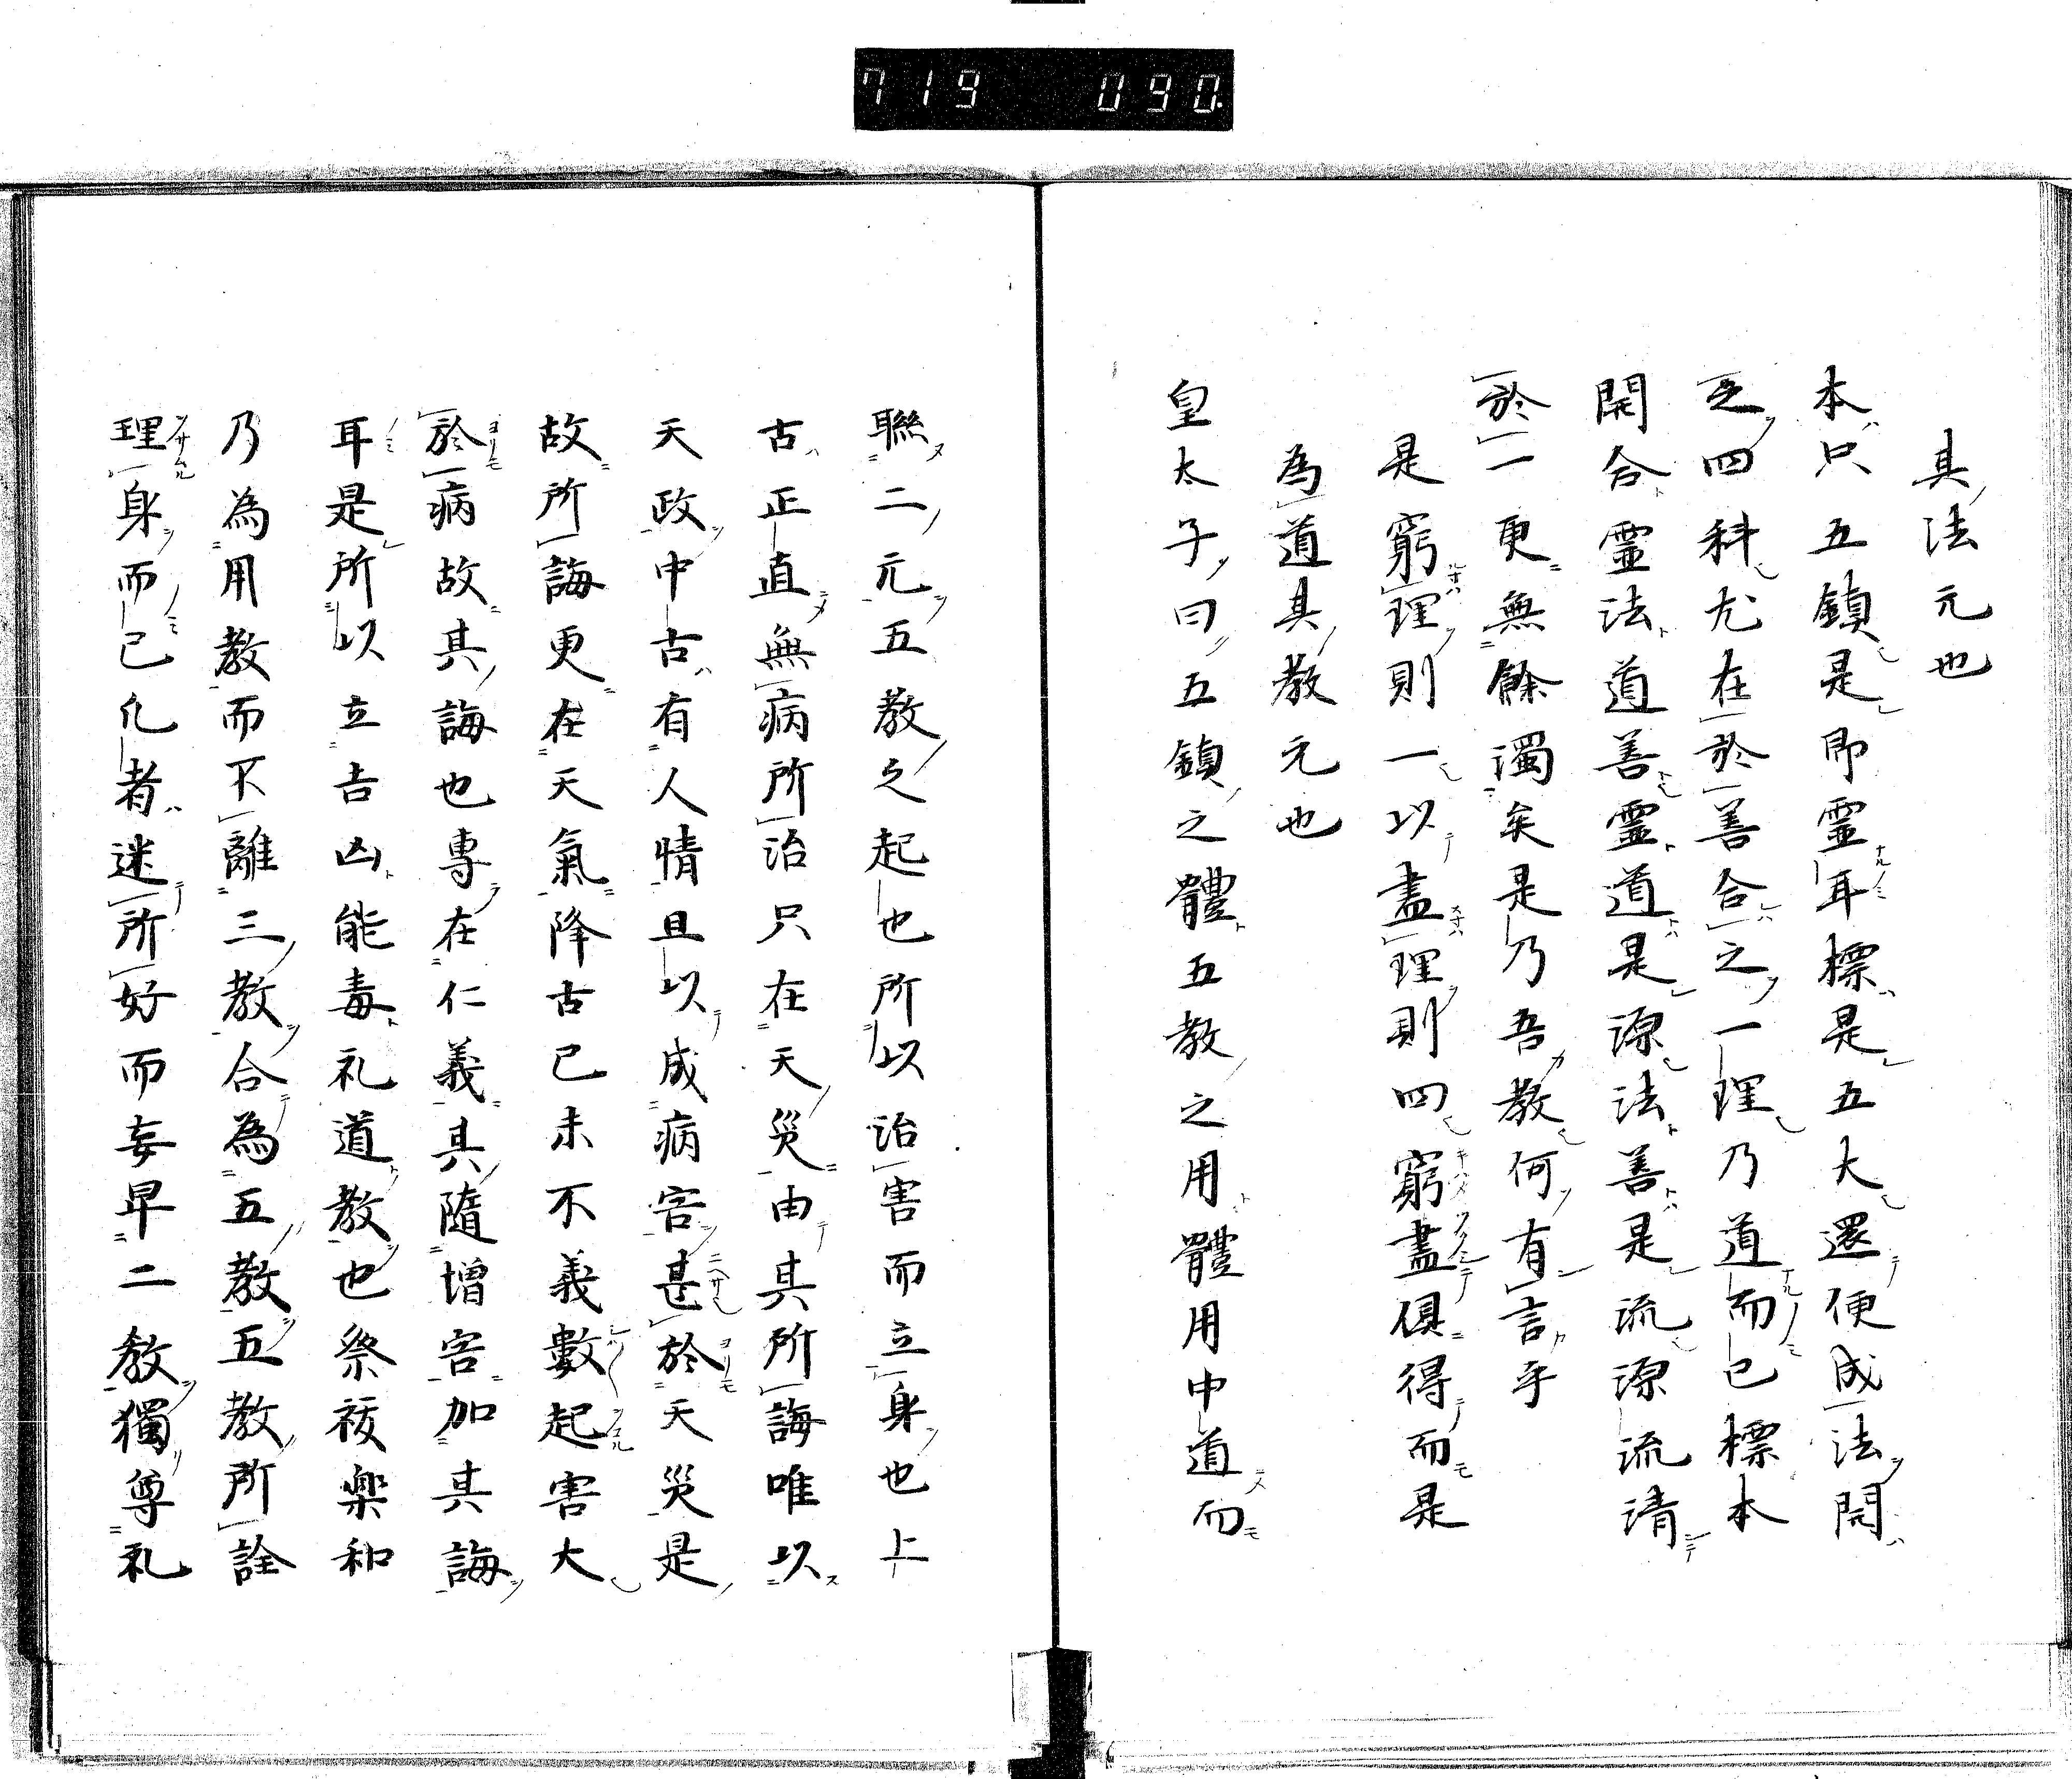 719 090
其法元也
本只五鎮是即霊耳標是五大還便成法開
之四科尤在於善合之一理乃道而已標本
開合霊法道善霊道是源法善是流源流清
於一更無餘濁矣是乃吾教何有言乎
是窮理則一以盡理則四窮盡俱得而是
為道其教元也
皇太子曰五鎮之體五教之用體用中道而
聯二元五教之起也所以治害而立身也上
古正直無病所治只在天災由其所誨唯以
天政中古有人情且以成病害甚於天災是
故所誨更在天氣降古已未不義數起害大
於病故其誨也專在仁義其隨增害加其誨
耳是所以立吉凶能毒礼道教也祭祓楽和
乃為用教而不離三教合為五教五教所詮
理身而已凡者迷所好而妄早二教獨尊礼